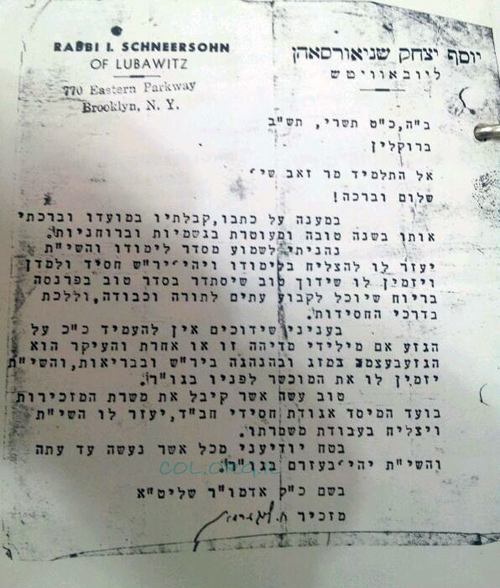 RABBI I. SCHNEERSOHN
OF LUBAWITZ
770 Eastern Parkway
Brooklyn, N. Y.
יוסף יצחק שניאורסאהן
ליובאוויטש
ב"ה, כ"ט תשרי, תש"ב
ברוקלין
אל התלמיד מר זאב שי'
שלום וברכה!
במענה על כתבו, קבלתיו במועדו וברכתי
אותו בשנה טובה ומעוטרת בגשמיות וברוחניות.
נהניתי לשמוע מסדר לימודו והשי"ת
יעזר לו להצליח בלימודו ויהי' יר"ש חסיד ולמדן
ויזמין לו שידוך טוב שיסתדר בסדר טוב בפרנסה
בריוח שיוכל לקבוע עתים לתורה וכבודה, וללכת
בדרכי החסידות.
בעניני שידוכים אין להעמיד כ"כ על
הגזע אם מילידי מדיהה זו או אחרת והעיקר הוא
הגזע בעצמו במזג ובהנהגה ביר"ש ובבריאות, והשי"ת
יזמין לו את המוכשר לפניו בגו"ר.
טוב עשה אשר קיבל את משרת המזכירות
בועד המיסד אגודת חסידי חב"ד, יעזר לו השי"ת
ויצליח בעבודת משמרתו.
בטח יודיעני מכל אשר נעשה עד עתה
והשי"ת יהי' בעזרם בגו"ר.
COL.ORG.IL
בשם כ"ק אדמו"ר שליט"א
מזכיר